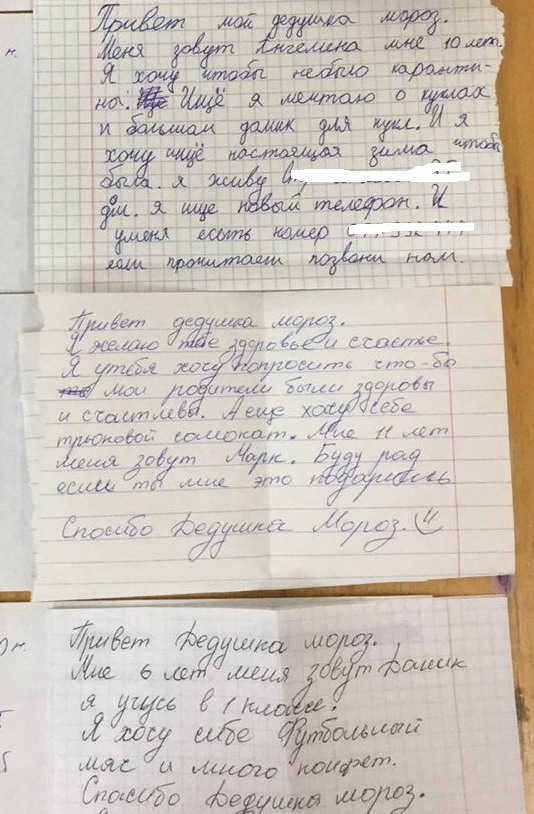 Привет мой дедушка мороз.
Меня зовут Ангемена мне 10 лет.
Я хочу чтобы небыло каранти-
на. Ищё я мечтаю о куклах
и большой домик для кукл. И я
хочу ищё настоящая зима чтобы
была. я живу
дм. я ище новый телефон. И
уменя есоть номер
если прочитаеш позвони нам.
Привет дедушка мороз.
Я желаю тебе здоровье и счастье.
Я утебя хочу попросить что-бы
мои родители были здоровы
и счастлевы. А еще хочу себе
трюковой самокат. Мне 11 лет
меня зовут Марк. Буду рад
если ты мне это подаришь
Спосибо Дедушка Мороз.
Привет Дедушка мороз.
Мне 6 лет меня зовут Даник
я учусь в 1 классе.
Я хосу себе Футбольный
мяс и много конфет.
Спасибо Дедушка мороз.